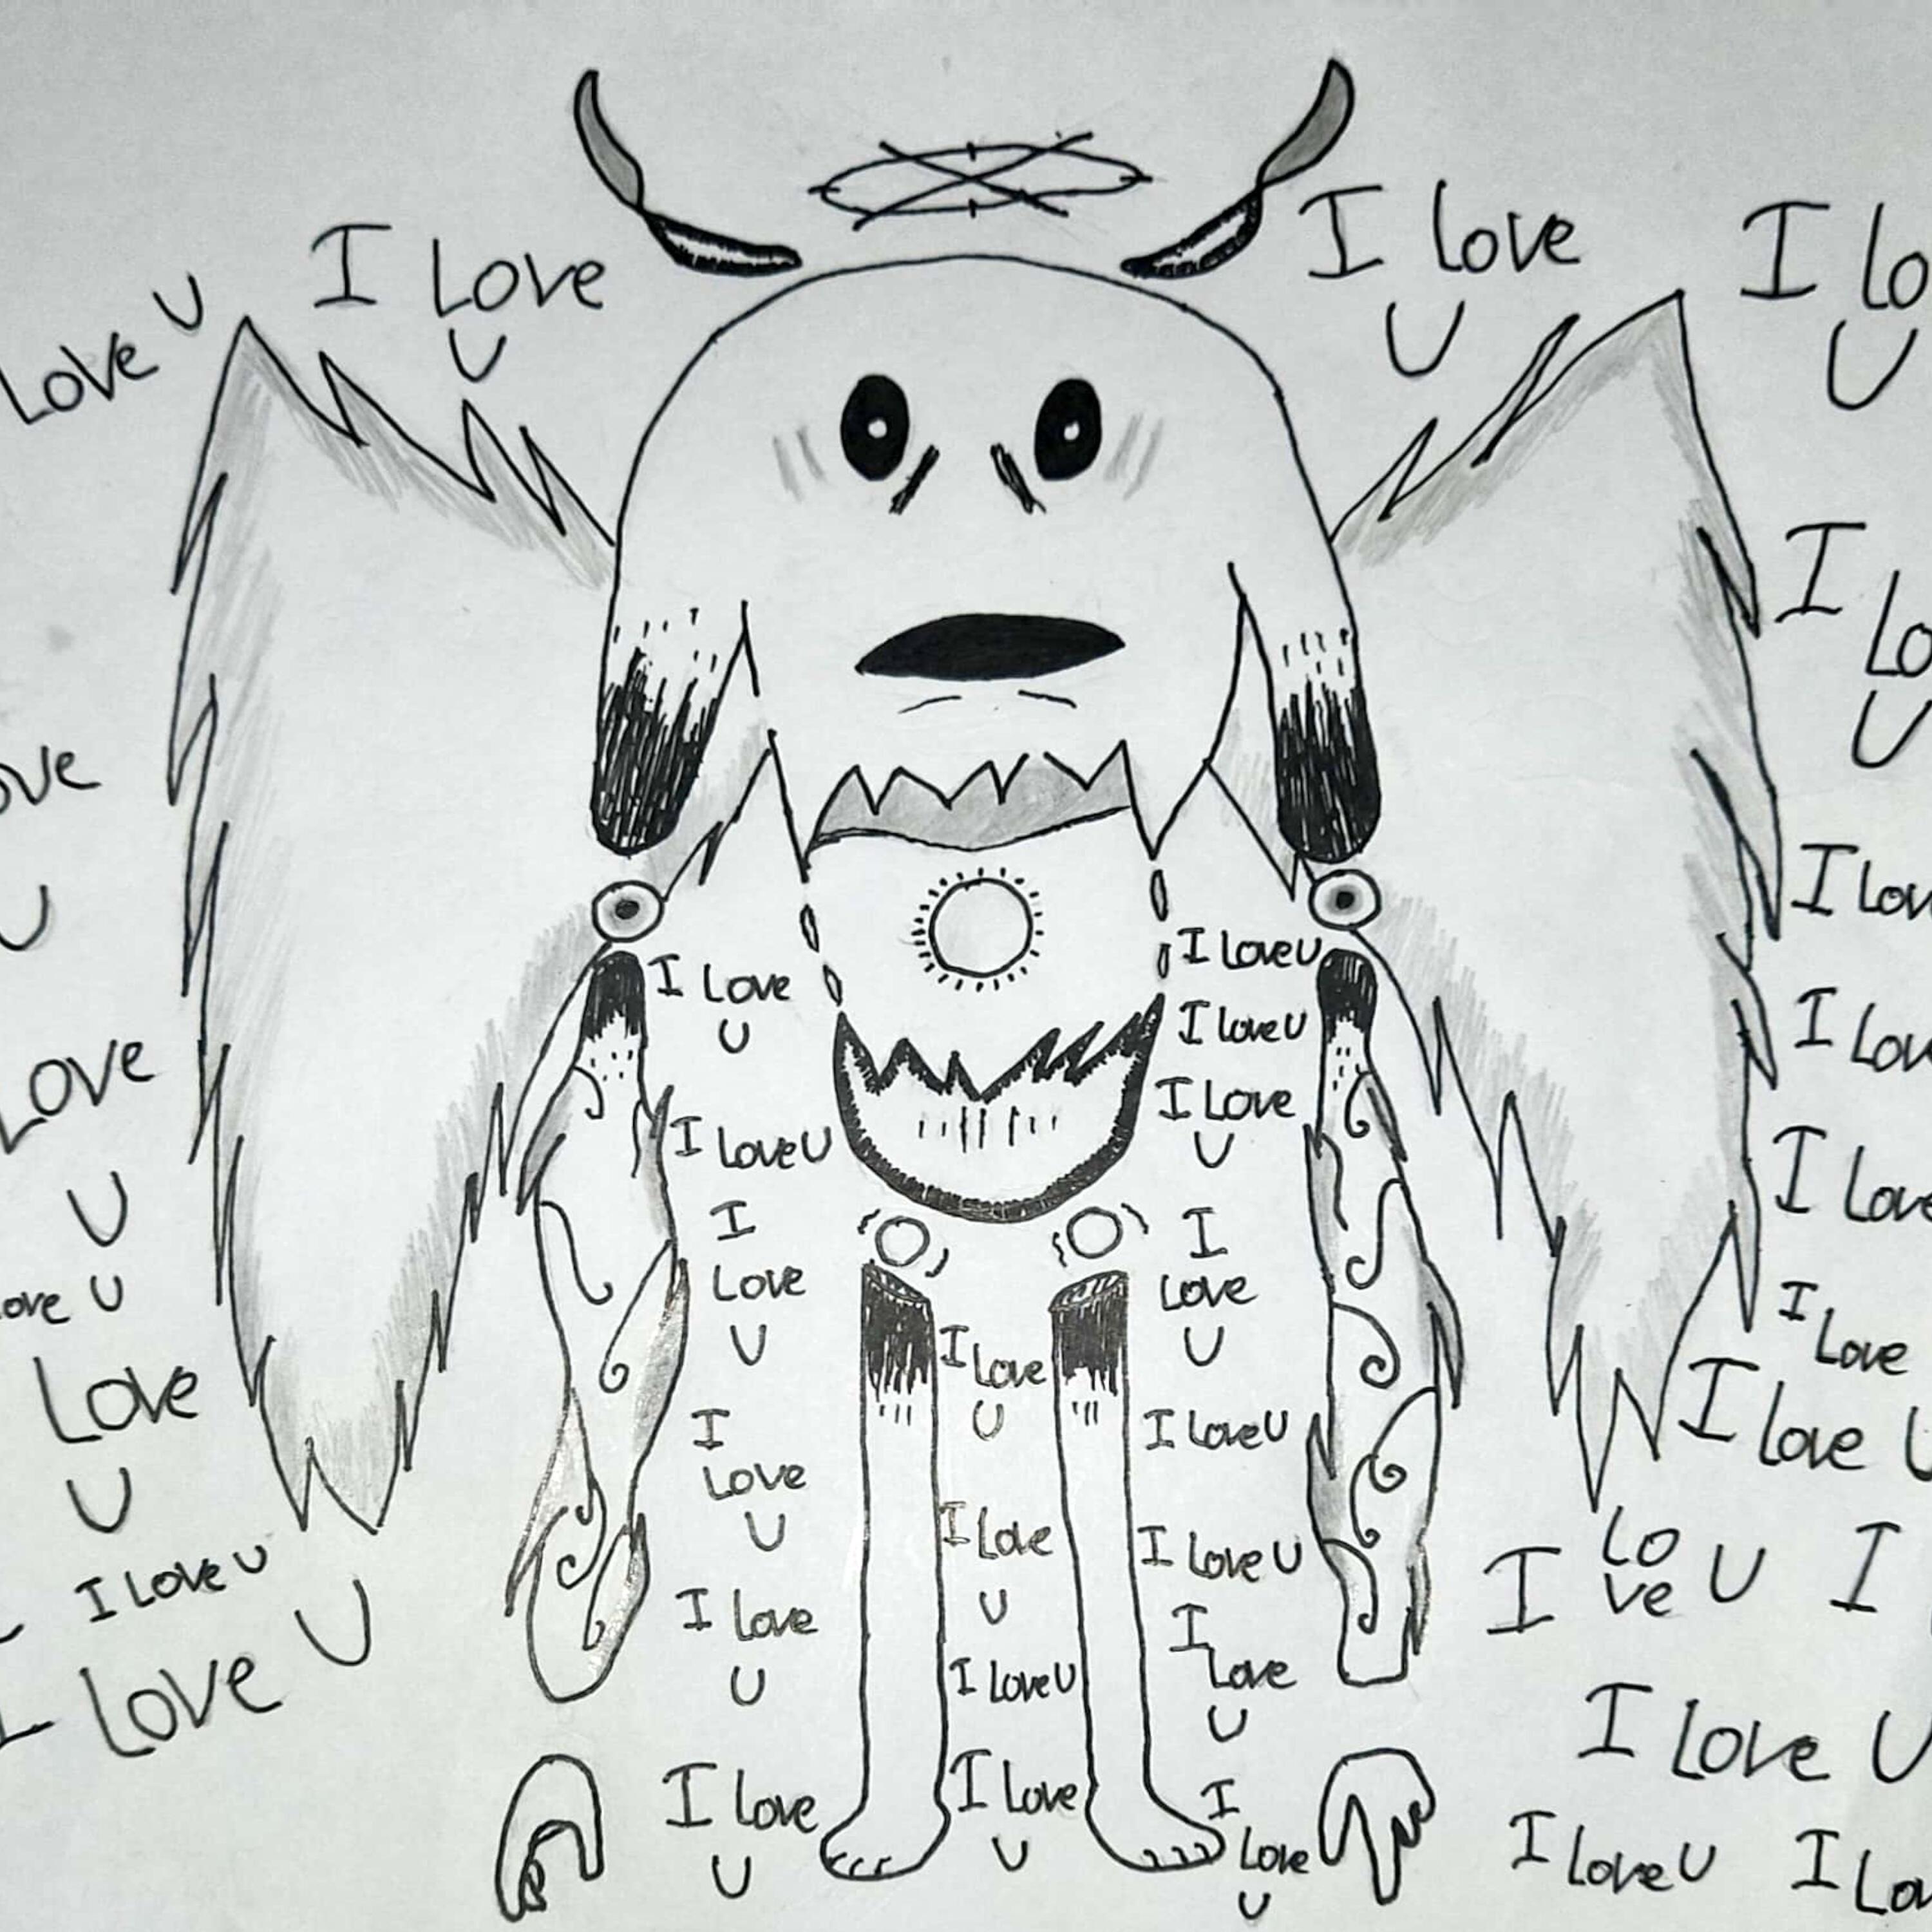 Love U
I Love
U
I Love
U
I Lo
U
I
Lo
U
ove
U
Love
U
ove U
Love
U
I Love U
I Love U
I Love
U
I Love U
I
Love
U
I
Love
U
I Love
U
I Love
U
I Love
U
I Love
U
I Love U
I Love
U
I Love U
I Love U
I Love
U
I
Love
U
I Love U
I Love U
I
Love
U
I
Love
U
I Lov
I Lov
I Love
I
Love
I Love U
I Lo
ve U
I
I Love U
I Love U
I Lov